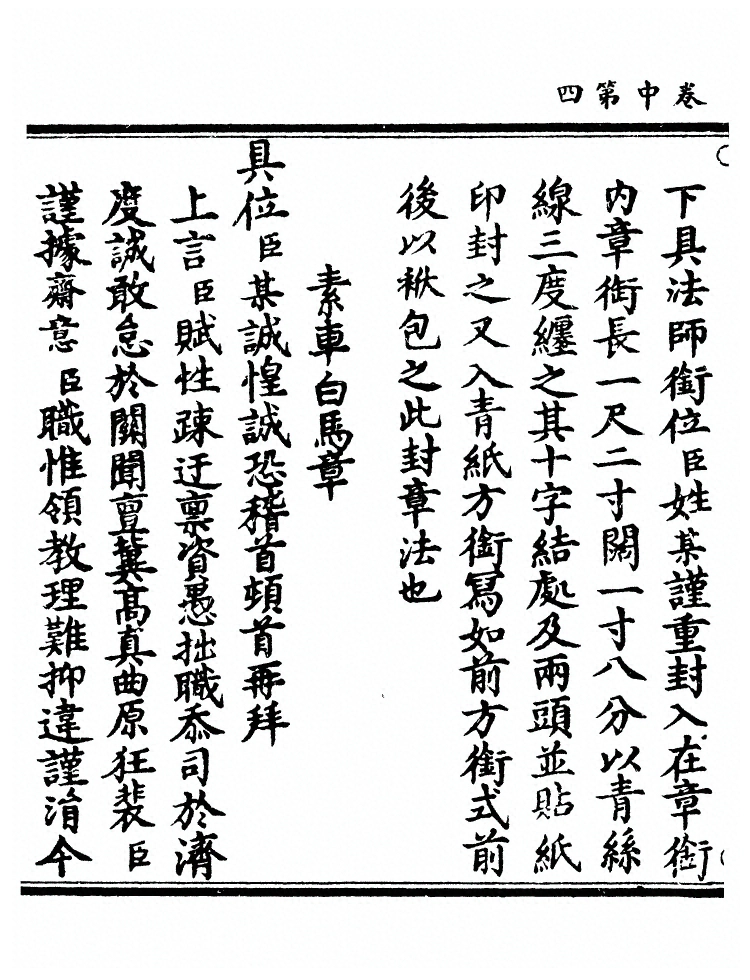 卷中第四
下具法師銜位臣姓某謹重封入在章銜
內章銜長一尺二寸闊一寸八分以青絲
線三度纏之其十字結處及兩頭並貼紙
印封之又入青紙方銜寫如前方銜式前
後以袱包之此封章法也
素車白馬章
具位臣某誠惶誠恐稽首頓首再拜
上言臣賦性踈迂禀資愚拙職忝司於濟
度誠敢怠於關聞亶冀高真曲原狂裴臣
謹據齋意臣職惟領教理難抑違謹涓今